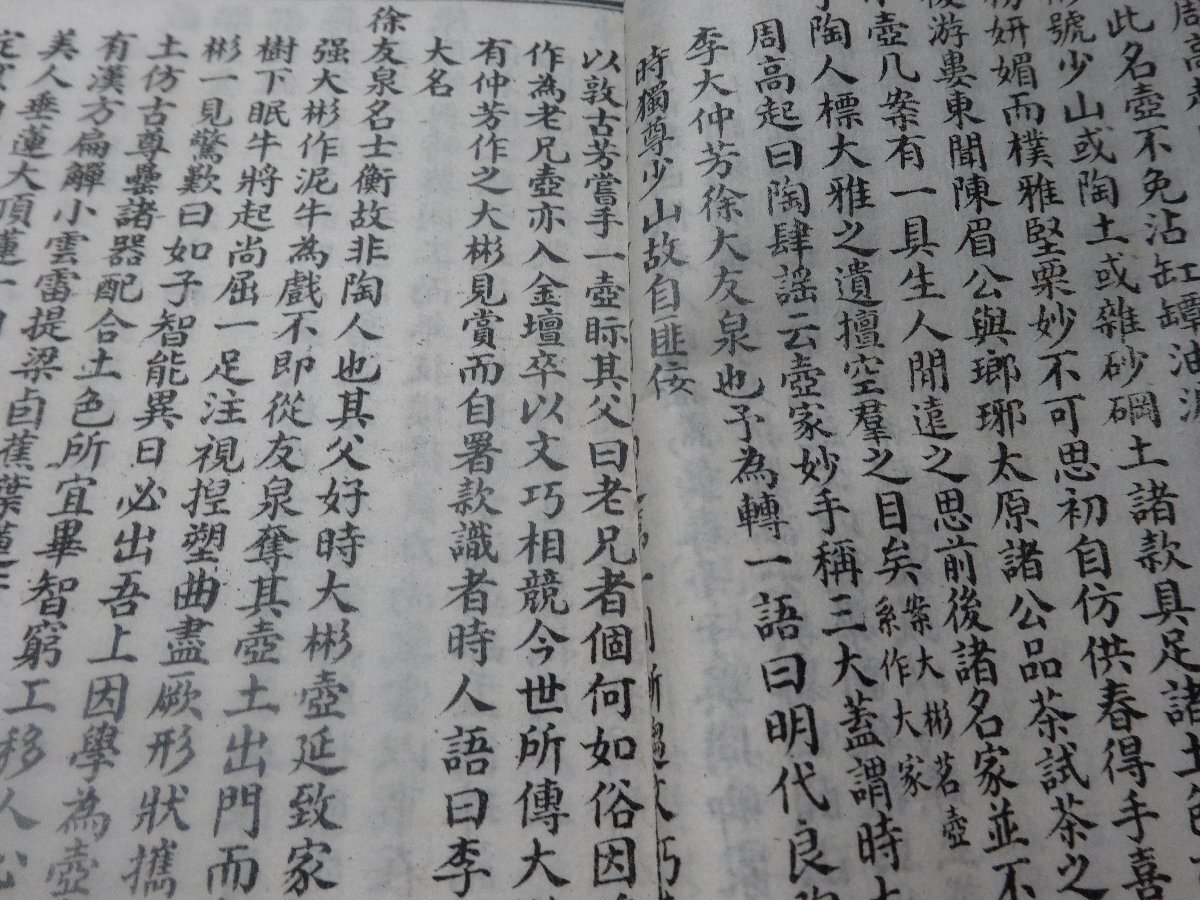 周高
此名壺不免沾缸罈油
號少山或陶土或雜砂碙土諸款具足諸土
妍媚而樸雅堅栗妙不可思初自仿供春得手喜
後游婁東聞陳眉公與瑯琊太原諸公品茶試茶之
壺几案有一具生人閒遠之思前後諸名家並不
陶人標大雅之遺擅空羣之目矣案大彬茗壺
系作大家
周高起曰陶肆謠云壺家妙手稱三大蓋謂時
李大仲芳徐大友泉也予為轉一語曰明代良
時獨尊少山故自匪佞
以敦古芳嘗手一壺眎其父曰老兄者個何如俗因
作為老兄壺亦入金壇卒以文巧相競今世所傳大
有仲芳作之大彬見賞而自署款識者時人語曰李
大名
徐友泉名士衡故非陶人也其父好時大彬壺延致家
强大彬作泥牛為戲不即從友泉奪其壺土出門而
樹下眠牛將起尚屈一足注視捏塑曲盡厥形狀攜
彬一見驚歎曰如子智能異日必出吾上因學為壺
土仿古尊罍諸器配合土色所宜畢智窮工移人
有漢方扁觶小雲雷提梁卣蕉葉蓮
美人垂蓮大頂蓮一